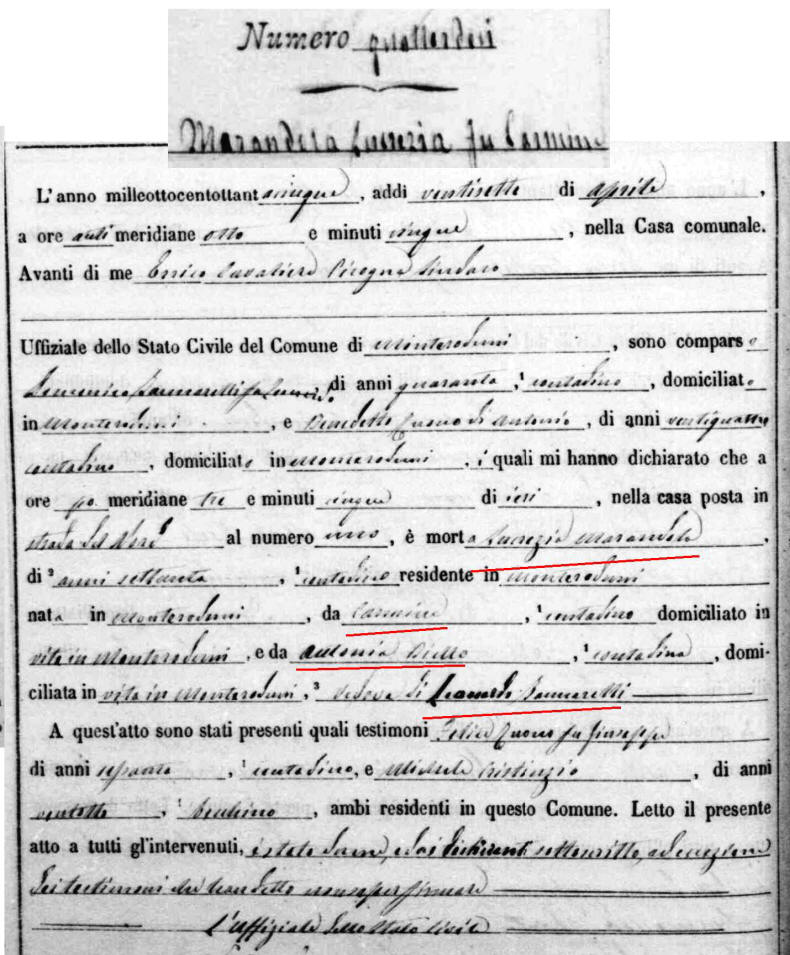 Numero quattordici
Marandola Lucrezia fu Carmine
L'anno milleottocentottantacinque, addi ventisette di aprile,
a ore antimeridiane otto e minuti cinque, nella Casa comunale.
Avanti di me Errico Cavaliere Cicogna Sindaco
Uffiziale dello Stato Civile del Comune di Monteroduni, sono comparso
Domenico di anni quaranta, contadino, domiciliato
in Monteroduni, e Benedetto di Antonio, di anni ventiquattro
contadino, domiciliato in Monteroduni, i quali mi hanno dichiarato che a
ore pomeridiane tre e minuti cinque di ieri, nella casa posta in
strada al numero uno, è morta Lucrezia Marandola,
di anni settanta, contadina residente in Monteroduni
nata in Monteroduni, da Carmine, contadino domiciliato in
vita in Monteroduni, e da Antonia, contadina, domi-
ciliata in vita in Monteroduni, vedova di Leonardo
A quest'atto sono stati presenti quali testimoni Felice fu Giuseppe
di anni, contadino, e Michele, di anni
ventotto,, ambi residenti in questo Comune. Letto il presente
atto a tutti gl'intervenuti,
dei testimoni che han detto non saper firmare
L'uffiziale dello stato Civile